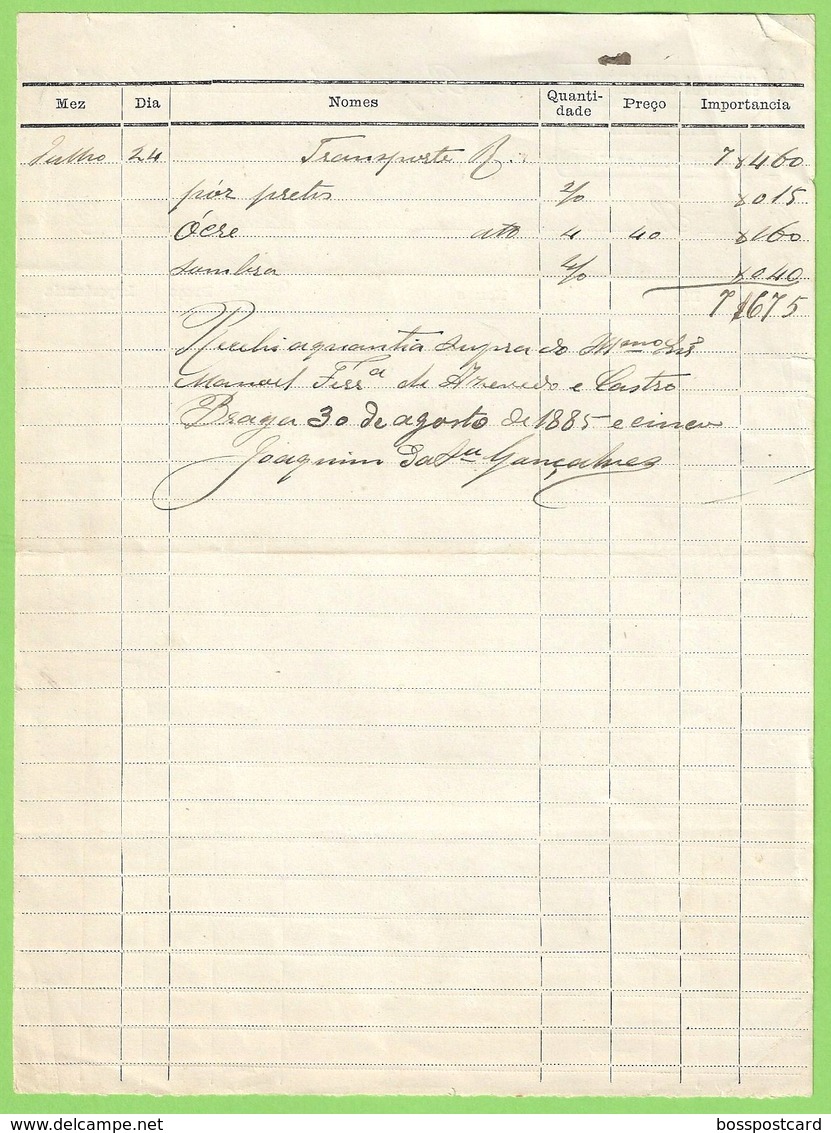 Mez Dia Nomes Quanti-dade Preço Importancia
Julho 24 Transporte R. 7$460
pór pretis $015
Ócre 4 40 $160
sombra $040
7$675
Recebi a quantia supra do Illmo Snr
Manoel Ferra de Azevedo e Castro
Braga 30 de agosto de 1885 e cinco
Joaquim da Sa Gonçalves
bosspostcard